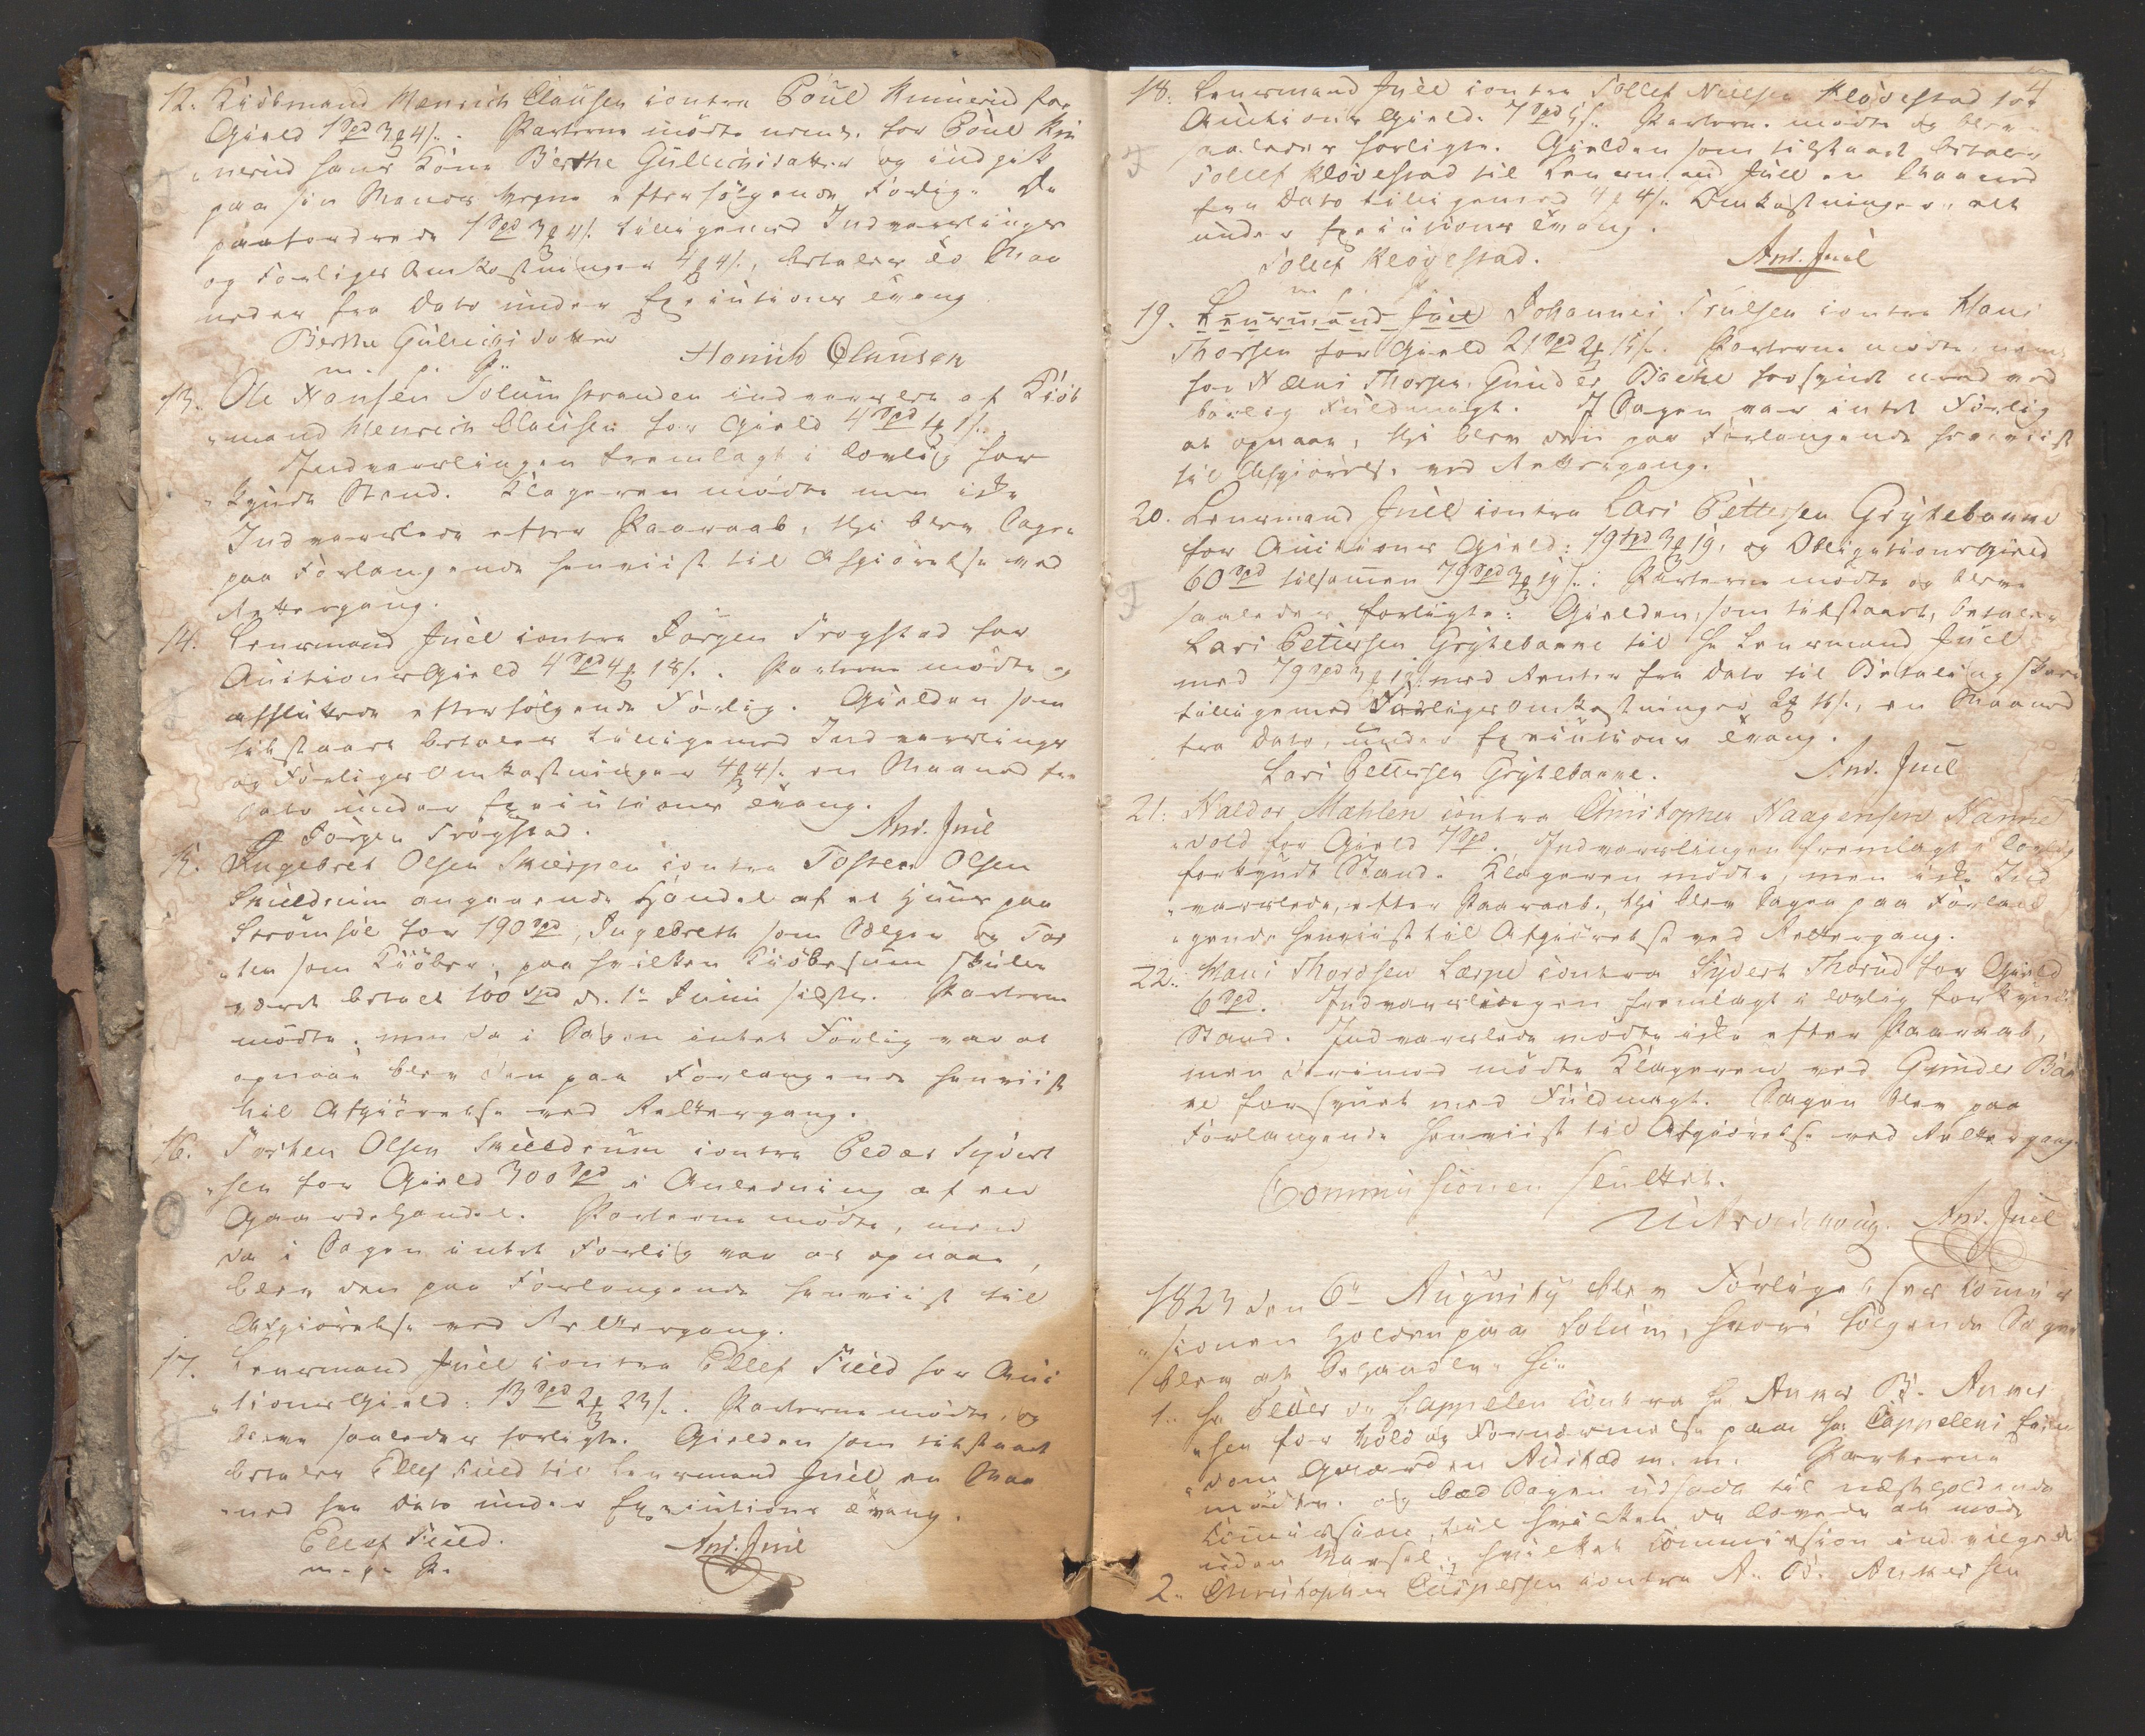 12. Kiöbmand Henrich Clausen contra Poul Kinnerud for
Gield 1 Spd 3 # 4 s. Parterne mödte nemlig for Poul Kin
„nerud hans Kone Berthe Gullichsdatter og indgik
paa sin Mands Vegne efterfølgende Forlig. De
paafordrede 1 Spd 3 # 4 s. tilligemed Indvarslings
og Forligs Omkostninger 4 # 4 s., betales to Maa
neder fra Dato under Executions Tvang
Berthe Gullichsdatter
m. p. P.
Henrich Clausen
13. Ole Hansen Solumstranden indvarslet af Kiöb
„mand Henrich Clausen for Gield 4 Spd 1 # 1 s.
Indvarslingen fremlagt i lovlig for
„kyndt Stand. Klageren mödte men ikke
Indvarslede efter Paaraab, thi blev Sagen
paa Forlangende henviist til Afgiörelse ved
Rettergang.
14. Lensmand Juel contra Jörgen Trogstad for
AuctionsGield 4 Spd 4 # 18 s. Parterne mödte og
afsluttede efterfölgende Forlig. Gielden som
tilstaaet betales tilligemed Indvarslings
og Forligs Omkostninger 4 # 4 s. en Maaned fra
Dato under Executions Tvang.
Jörgen Trogstad.
And. Juel
15. Engebret Olsen Skierpen contra Tosten Olsen
Skuldrum angaaende Handel af et Huus paa
Strömsöe for 190 Spd, Ingebreth som Sælger og Tos
„ten som Kiöber, paa hvilken Kiöbesum skulde
været betalt 100 Spd d. 1ste Junii sidste. Parterne
mödte. men da i Sagen intet Forlig var at
opnaae blev den paa Forlangende henviist
til Afgiörelse ved Rettergang.
16. Torsten Olsen Skuldrum contra Peder Syvert
„sen for Gield 300 Spd i Anledning af en
Gaardehandel. Parterne mödte, men
da i Sagen intet Forlig var at opnaae,
blev den paa Forlangende henviist til
Afgiörelse ved Rettergang.
17. Lensmand Juel contra Ellef Field for Auc
„tionsGield: 13 Spd 2 # 23 s. Parterne mödte, og
bleve saaledes forligte. Gielden som tilstaaet
betaler Ellef Field til Lensmand Juel en Maa
„ned fra Dato under Executions Tvang.
Ellef Field.
m. p. P.
And. Juel
4
18. Lensmand Juel contra Tollef Nielsen Klövestad for
Auctions Gield. 7 Spd 5 s. Parterne mödte og bleve
saaledes forligte. Gielden som tilstaaet betaler
Tollef Klövestad til Lensmand Juel en Maaned
fra Dato tilligemed 4 # 4 s. Omkostninger, alt
under Executions Tvang.
Tollef Klövestad.
m. p. P.
And. Juel
19. Lensmand Juel Johannes Trulsen contra Hans
Thorsen for Gield 21 Spd 2 # 15 s. Parterne mödte, nem
for Hans Thorsen Gunder Bache forsynet med ved
börlig Fuldmagt. I Sagen var intet Forlig
at opnaae, thi blev den paa Forlangende henviist
til Afgiörelse ved Rettergang.
20. Lensmand Juel contra Lars Pettersen Grytebanne
for Auctions Gield: 19 Spd 3 # 19, og Obligationsgield
60 Spd tilsammen 79 Spd 3 # 19 s.: Parterne mödte og bleve
saaledes forligte: Gielden, som tilstaaet, betaler
Lars Pettersen Grytebanne til Hr Lensmand Juel
med 79 Spd 3 # 19 s. med Renter fra Dato til Betaling skeer
tilligemed Forligs Omkostninger 2 # 16 s., en Maaned
fra Dato, under Executions Tvang.
Lars Pettersen Grytebanne.
And. Juel
21. Haldor Mæhlen contra Christopher Haagensen Hanne
„vold for Gield 7 Spd. Indvarslingen fremlagt i lovlig
forkyndt Stand. Klageren mödte, men ikke Ind
„varslede, efter Paaraab, thi blev Sagen paa Forlan
„gende henviist til Afgiörelse ved Rettergang.
22. Hans Thordsen Lærpe contra Syvert Thorud for Gield
6 Spd. Indvarslingen fremlagt i lovlig forkyndt
Stand. Indvarslede mödte ikke efter Paaraab,
men derimod mödte Klageren ved Gunder Bac
he forsynet med Fuldmagt. Sagen blev paa
Forlangende henviist til Afgiörelse ved Rettergang
Commissionen sluttet.
And. Juel
1823 den 6te Augusty blev Forligelses Commis
„sionen holden paa Solum, hvori fölgende Sager
blev at behandle:
1. Hr Peder v. Cappelen contra Hr Anker B. Anker
„sen for Hold og Fornærmelse paa Hr Cappelens Eien
„dom Gaarden m. m. Parterne
mödte. og bad Sagen udsadt til næstholdende
Commission, til hvilken de lovede at möde
uden Varsel; hvilket Commission indvilgede
2. Christopher Caspersen contra A. B. Ankersen